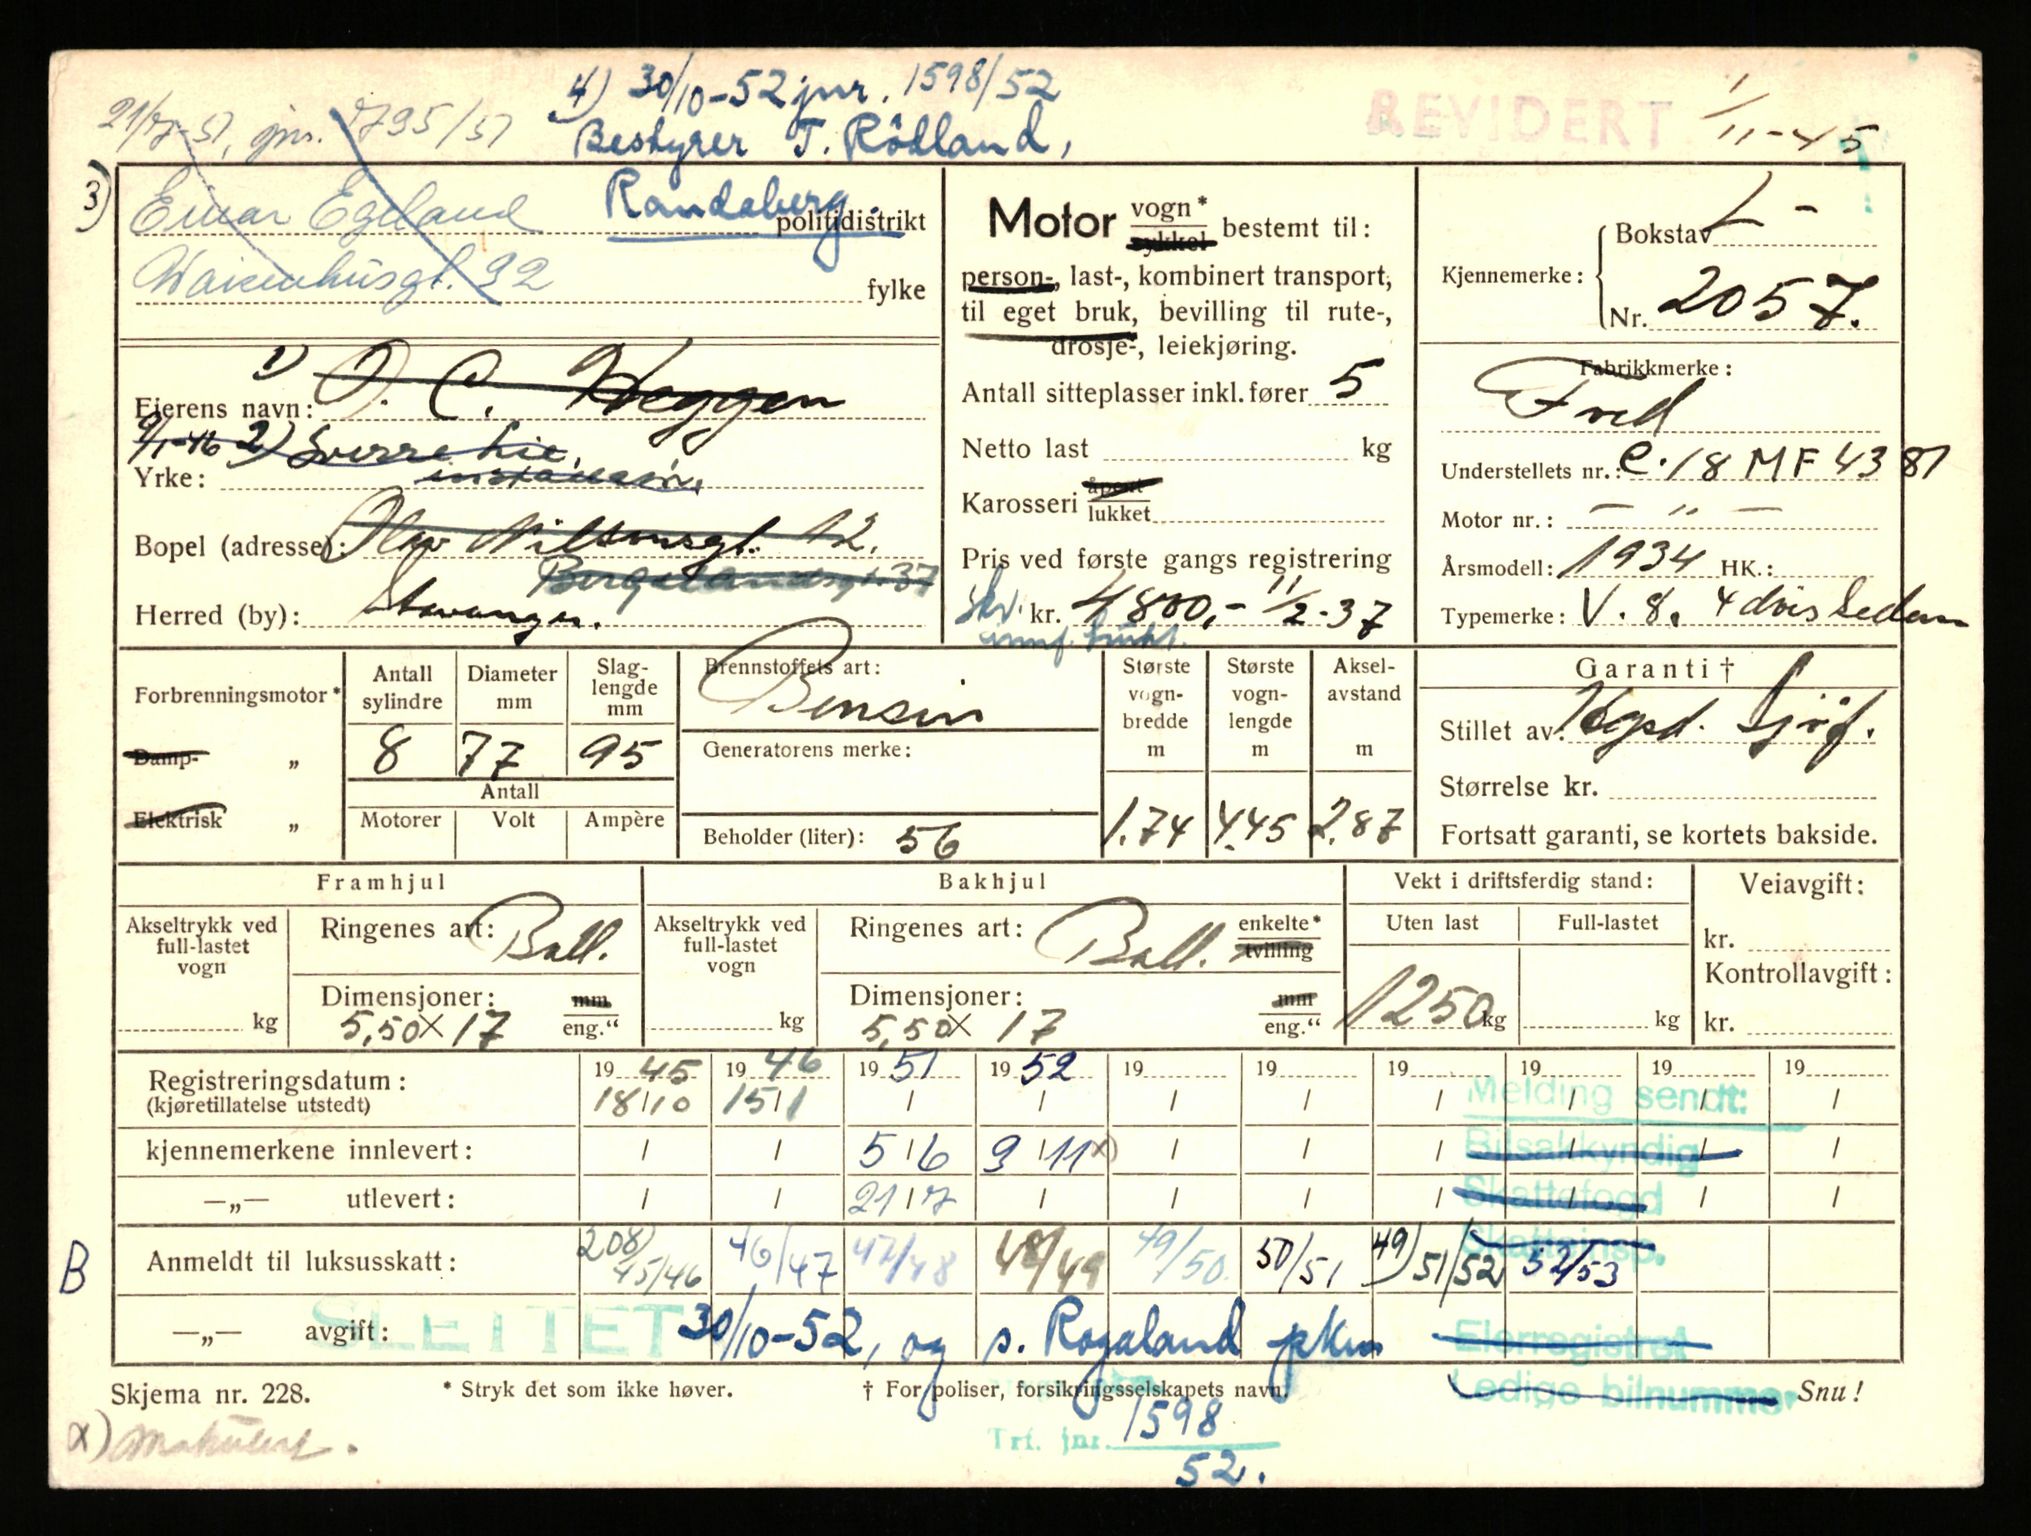 4) 30/10-52 jnr. 1598/52
21/7-51, jnr. 1795/51
Bestyrer T. Rödland,
Randaberg.
REVIDERT 1/11-45
3) Einar Egeland
politidistrikt
Waisenhusgt. 92
fylke
1) O. C. Heggen
Eierens navn:
9/1-46 2) Sverre Lie,
Yrke:
Bopel (adresse): Olav Nilsonsgt. 12.
Bergelandsgt. 37
Herred (by): Stavanger.
Motor vogn* sykkel bestemt til:
person-, last-, kombinert transport,
til eget bruk, bevilling til rute-,
drosje-, leiekjøring.
Antall sitteplasser inkl. fører 5
Netto last kg
Karosseri åpent lukket
Pris ved første gangs registrering
kr. 4800,- 11/2-37
Bokstav L-
Kjennemerke:
Nr. 2057.
Fabrikkmerke:
Ford
Understellets nr.: C.18 MF 4381
Motor nr.: — " —
Årsmodell: 1934 HK.:
Typemerke: V. 8. 4 dörs Sedan
Forbrenningsmotor*
Damp- „
Elektrisk „
Antall sylindre 8
Diameter mm 77
Slaglengde mm 95
Antall
Motorer Volt Ampère
Brennstoffets art:
Bensin
Generatorens merke:
Beholder (liter): 56
Største vogn-bredde m 1.74
Største vogn-lengde m 4.45
Aksel-avstand m 2.87
Garanti †
Stillet av:
Størrelse kr.
Fortsatt garanti, se kortets bakside.
Framhjul
Akseltrykk ved full-lastet vogn
kg
Ringenes art: Ball.
Dimensjoner: mm
5,50 x 17 eng."
Bakhjul
Akseltrykk ved full-lastet vogn
kg
Ringenes art: Ball. enkelte* tvilling
Dimensjoner: mm
5,50 x 17 eng."
Vekt i driftsferdig stand:
Uten last Full-lastet
1250 kg kg
Veiavgift:
kr.
Kontrollavgift:
kr.
Registreringsdatum: 1945 1946 1951 1952 19 19 19 19 19 19
(kjøretillatelse utstedt) 18/10 15/1
kjennemerkene innlevert: 5/6 3/11 x)
—„— utlevert: 21/7
B Anmeldt til luksusskatt: 208) 45/46 46/47 47/48 48/49 49/50 50/51 49) 51/52 52/53
—„— avgift:
SLETTET 30/10-52, og s. Rogaland pkm
Melding sendt:
Bilsakkyndig
Skattefogd
Skatteinsp.
Eierregistret
Ledige bilnummer
Skjema nr. 228.
* Stryk det som ikke høver.
† For poliser, forsikringsselskapets navn.
Snu!
x) Makulert.
Trf. jnr. 1598
52.